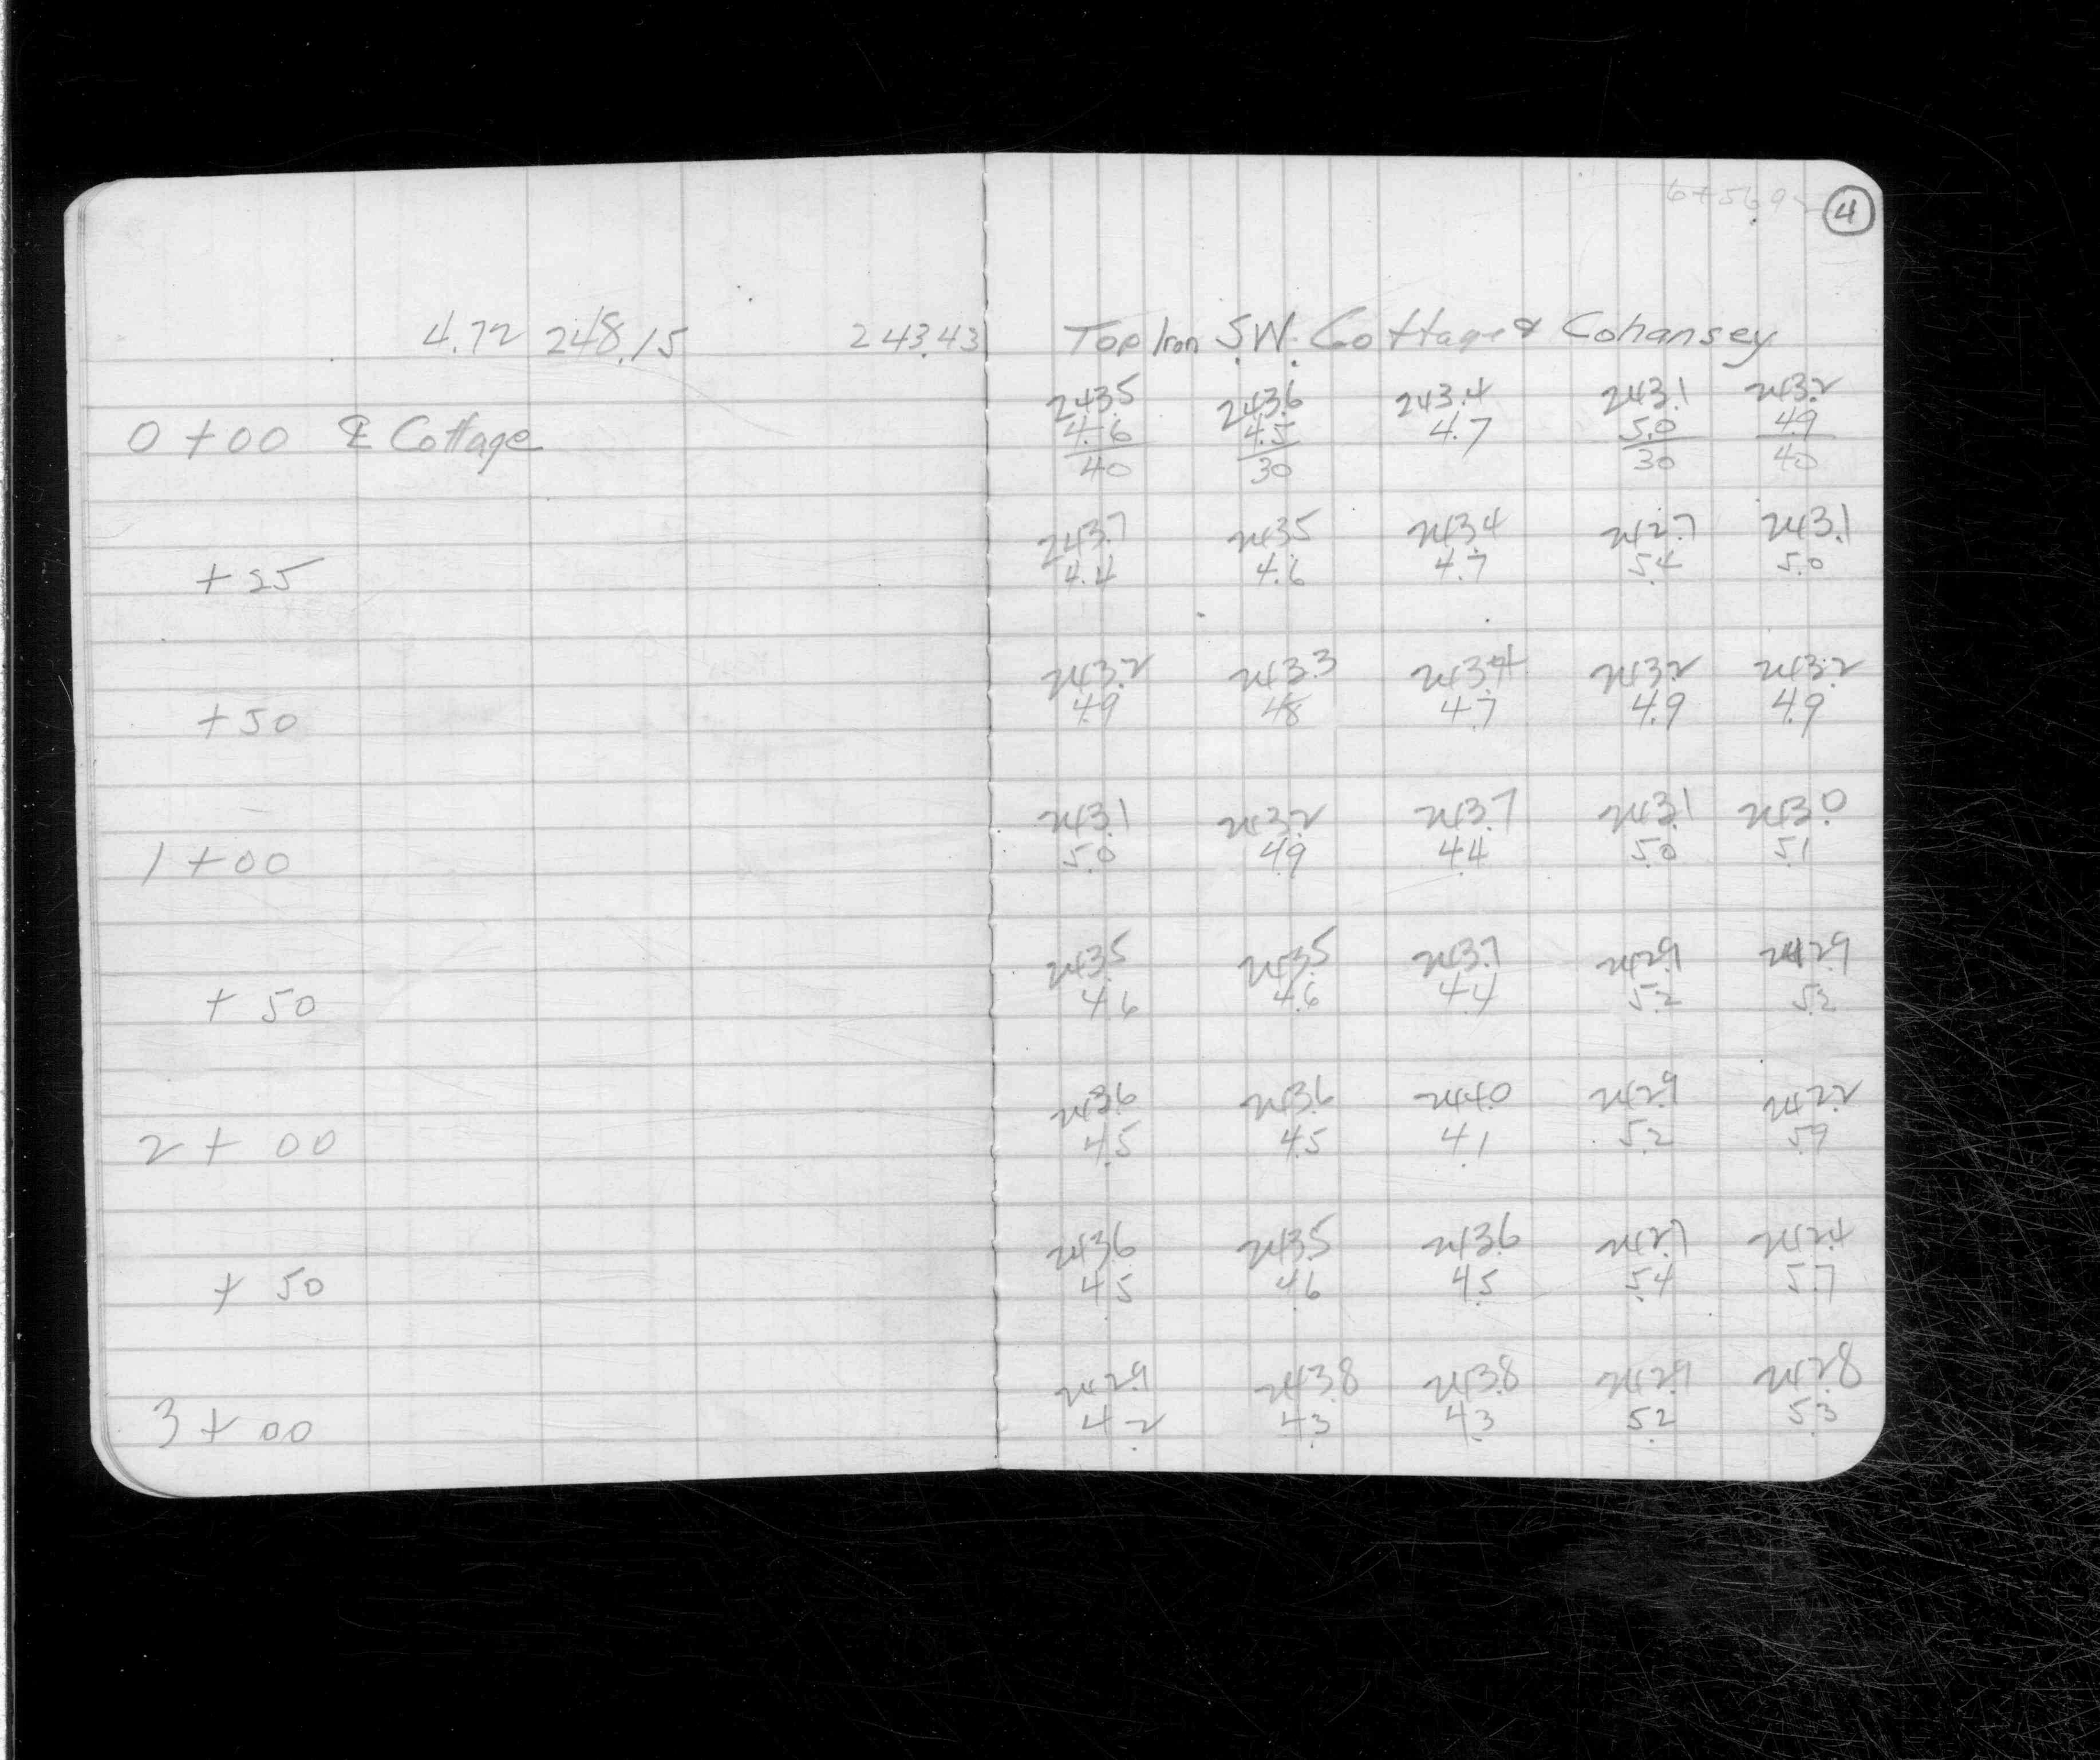 6+56.9
4
4.72 248.15 243.43 Top Iron S.W. Cottage & Cohansey
243.5 243.6 243.4 243.1 243.2
0+00 ℄ Cottage 4.6 4.5 4.7 5.0 4.9
40 30 30 40
243.7 243.5 243.4 242.7 243.1
+25 4.4 4.6 4.7 5.4 5.0
243.2 243.3 243.4 243.2 243.2
+50 4.9 4.8 4.7 4.9 4.9
243.1 243.2 243.7 243.1 243.0
1+00 5.0 4.9 4.4 5.0 5.1
243.5 243.5 243.7 242.9 242.9
+50 4.6 4.6 4.4 5.2 5.2
243.6 243.6 244.0 242.9 242.2
2+00 4.5 4.5 4.1 5.2 5.9
243.6 243.5 243.6 242.7 242.4
+50 4.5 4.6 4.5 5.4 5.7
242.9 243.8 243.8 242.9 242.8
3+00 4.2 4.3 4.3 5.2 5.3